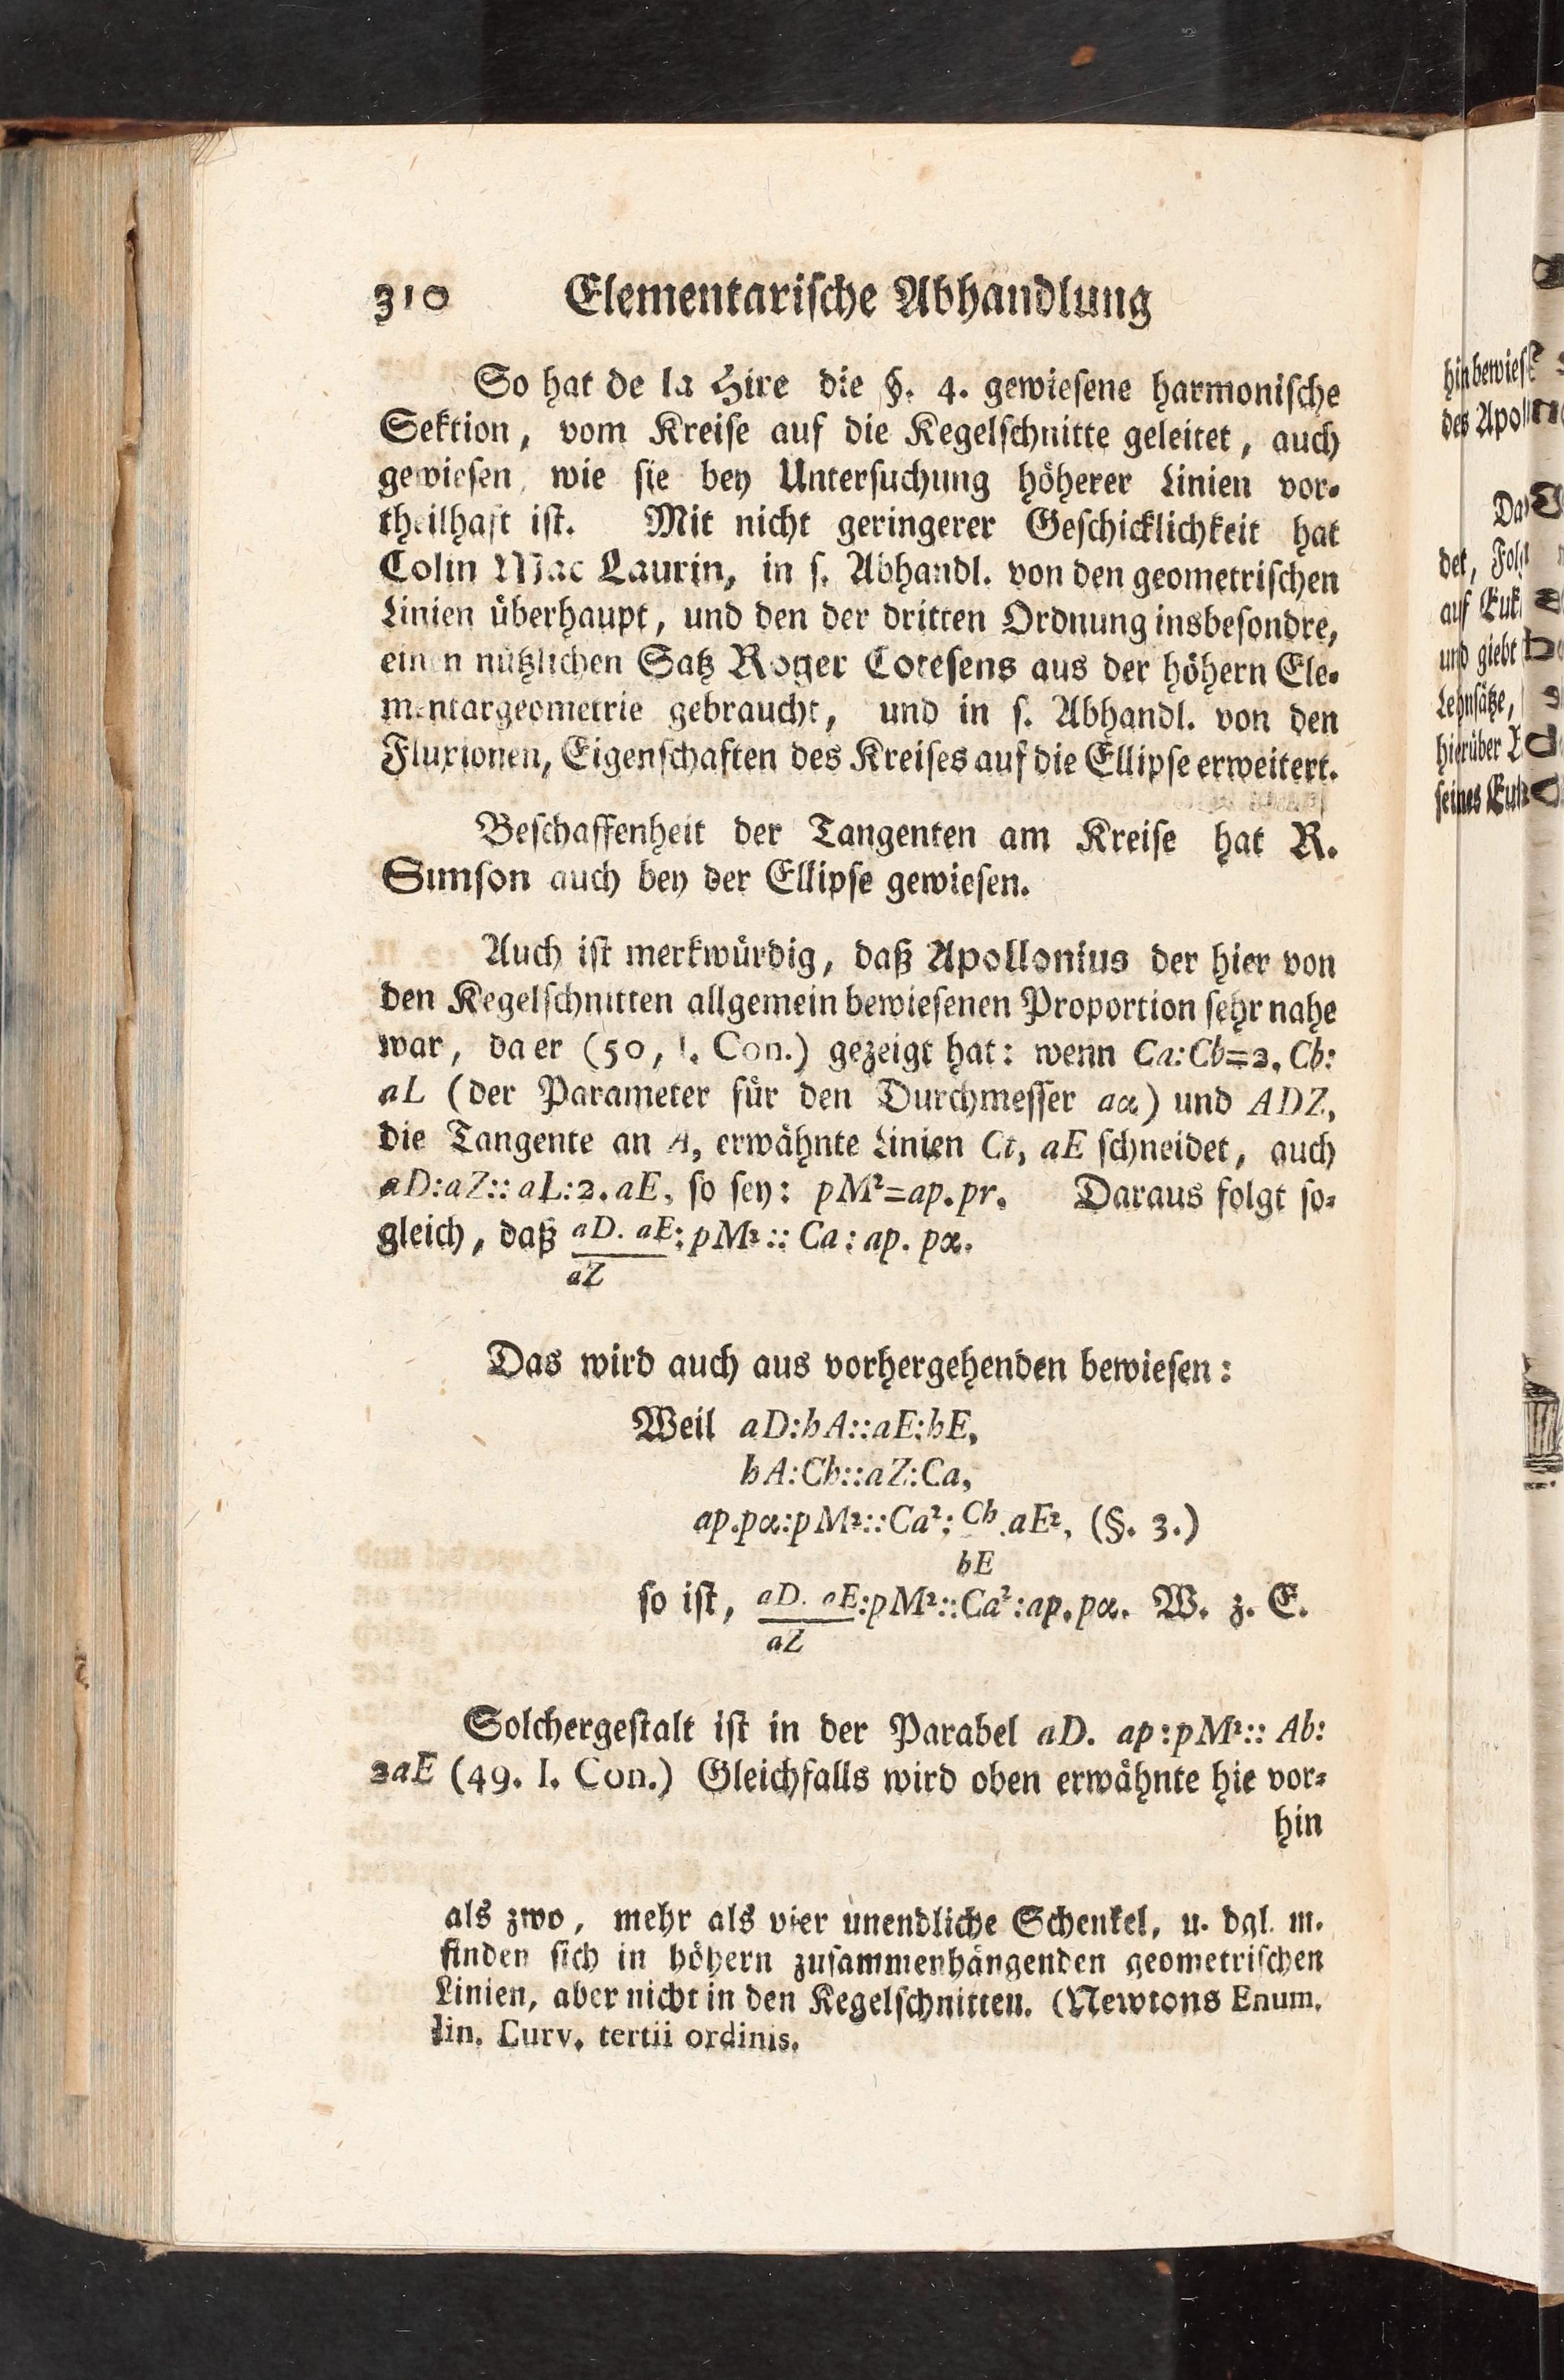 310 Elementarische Abhandlung
So hat de la Hire die §. 4. gewiesene harmonische
Sektion, vom Kreise auf die Kegelschnitte geleitet, auch
gewiesen, wie sie bey Untersuchung höherer Linien vor-
theilhaft ist. Mit nicht geringerer Geschicklichkeit hat
Colin Mac Laurin, in s. Abhandl. von den geometrischen
Linien überhaupt, und den der dritten Ordnung insbesondre,
einen nützlichen Satz Roger Cotesens aus der höhern Ele-
mentargeometrie gebraucht, und in s. Abhandl. von den
Fluxionen, Eigenschaften des Kreises auf die Ellipse erweitert.
Beschaffenheit der Tangenten am Kreise hat R.
Simson auch bey der Ellipse gewiesen.
Auch ist merkwürdig, daß Apollonius der hier von
den Kegelschnitten allgemein bewiesenen Proportion sehr nahe
war, da er (50, I. Con.) gezeigt hat: wenn Ca:Cb=2.Cb:
aL (der Parameter für den Durchmesser aα) und ADZ,
die Tangente an A, erwähnte Linien Ct, aE schneidet, auch
aD:aZ::aL:2.aE, so sey: pM²=ap.pr. Daraus folgt so-
gleich, daß aD. aE:pM²::Ca:ap. pα.
aZ
Das wird auch aus vorhergehenden bewiesen:
Weil aD:bA::aE:bE,
bA:Cb::aZ:Ca,
ap.pα:pM²::Ca²:Cb.aE², (§. 3.)
bE
so ist, aD. aE:pM²::Ca²:ap.pα. W. z. E.
aZ
Solchergestalt ist in der Parabel aD. ap:pM²::Ab:
2aE (49. I. Con.) Gleichfalls wird oben erwähnte hie vor-
hin
als zwo, mehr als vier unendliche Schenkel, u. dgl. m.
finden sich in höhern zusammenhängenden geometrischen
Linien, aber nicht in den Kegelschnitten. (Newtons Enum.
lin. Curv. tertii ordinis.